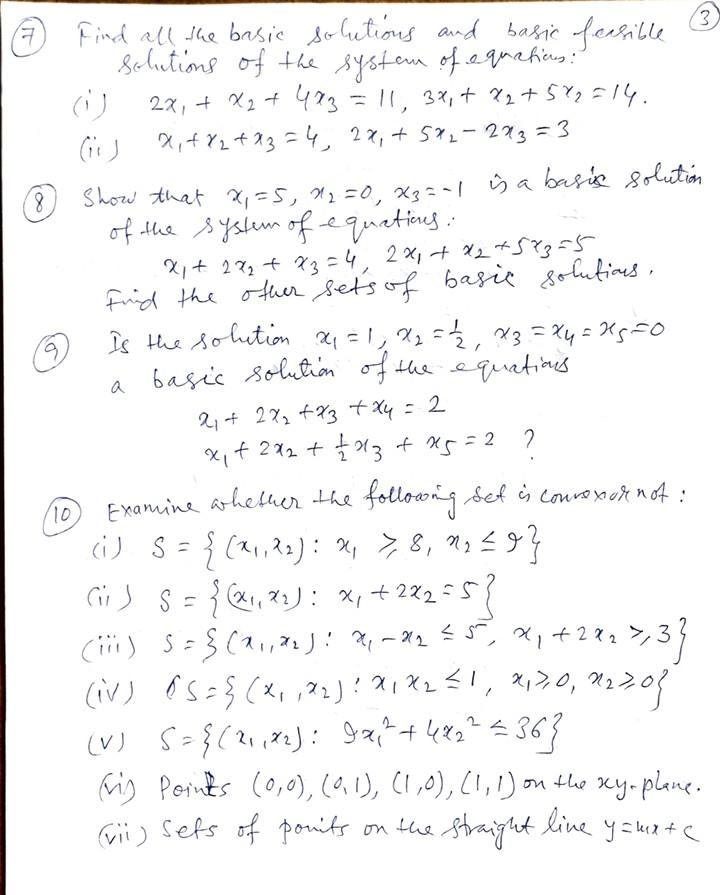 ③
⑦ Find all the basic solutions and basic feasible
solutions of the system of equations:
(i) 2x₁ + x₂ + 4x₃ = 11, 3x₁ + x₂ + 5x₂ = 14.
(ii) x₁ + x₂ + x₃ = 4, 2x₁ + 5x₂ - 2x₃ = 3
⑧ Show that x₁ = 5, x₂ = 0, x₃ = -1 is a basic solution
of the system of equations:
x₁ + 2x₂ + x₃ = 4, 2x₁ + x₂ + 5x₃ = 5
Find the other sets of basic solutions.
⑨ Is the solution x₁ = 1, x₂ = 1/2, x₃ = x₄ = x₅ = 0
a basic solution of the equations
x₁ + 2x₂ + x₃ + x₄ = 2
x₁ + 2x₂ + 1/2 x₃ + x₅ = 2 ?
⑩ Examine whether the following set is convex or not :
(i) S = {(x₁, x₂) : x₁ ≥ 8, x₂ ≤ 9}
(ii) S = {(x₁, x₂) : x₁ + 2x₂ = 5}
(iii) S = {(x₁, x₂) : x₁ - x₂ ≤ 5, x₁ + 2x₂ ≥ 3}
(iv) S = {(x₁, x₂) : x₁x₂ ≤ 1, x₁ ≥ 0, x₂ ≥ 0}
(v) S = {(x₁, x₂) : 9x₁² + 4x₂² ≤ 36}
(vi) Points (0,0), (0,1), (1,0), (1,1) on the xy-plane.
(vii) Sets of points on the straight line y = mx + c